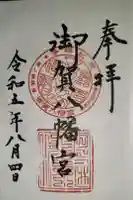 奉拝
御賀八幡宮
令和五年八月四日